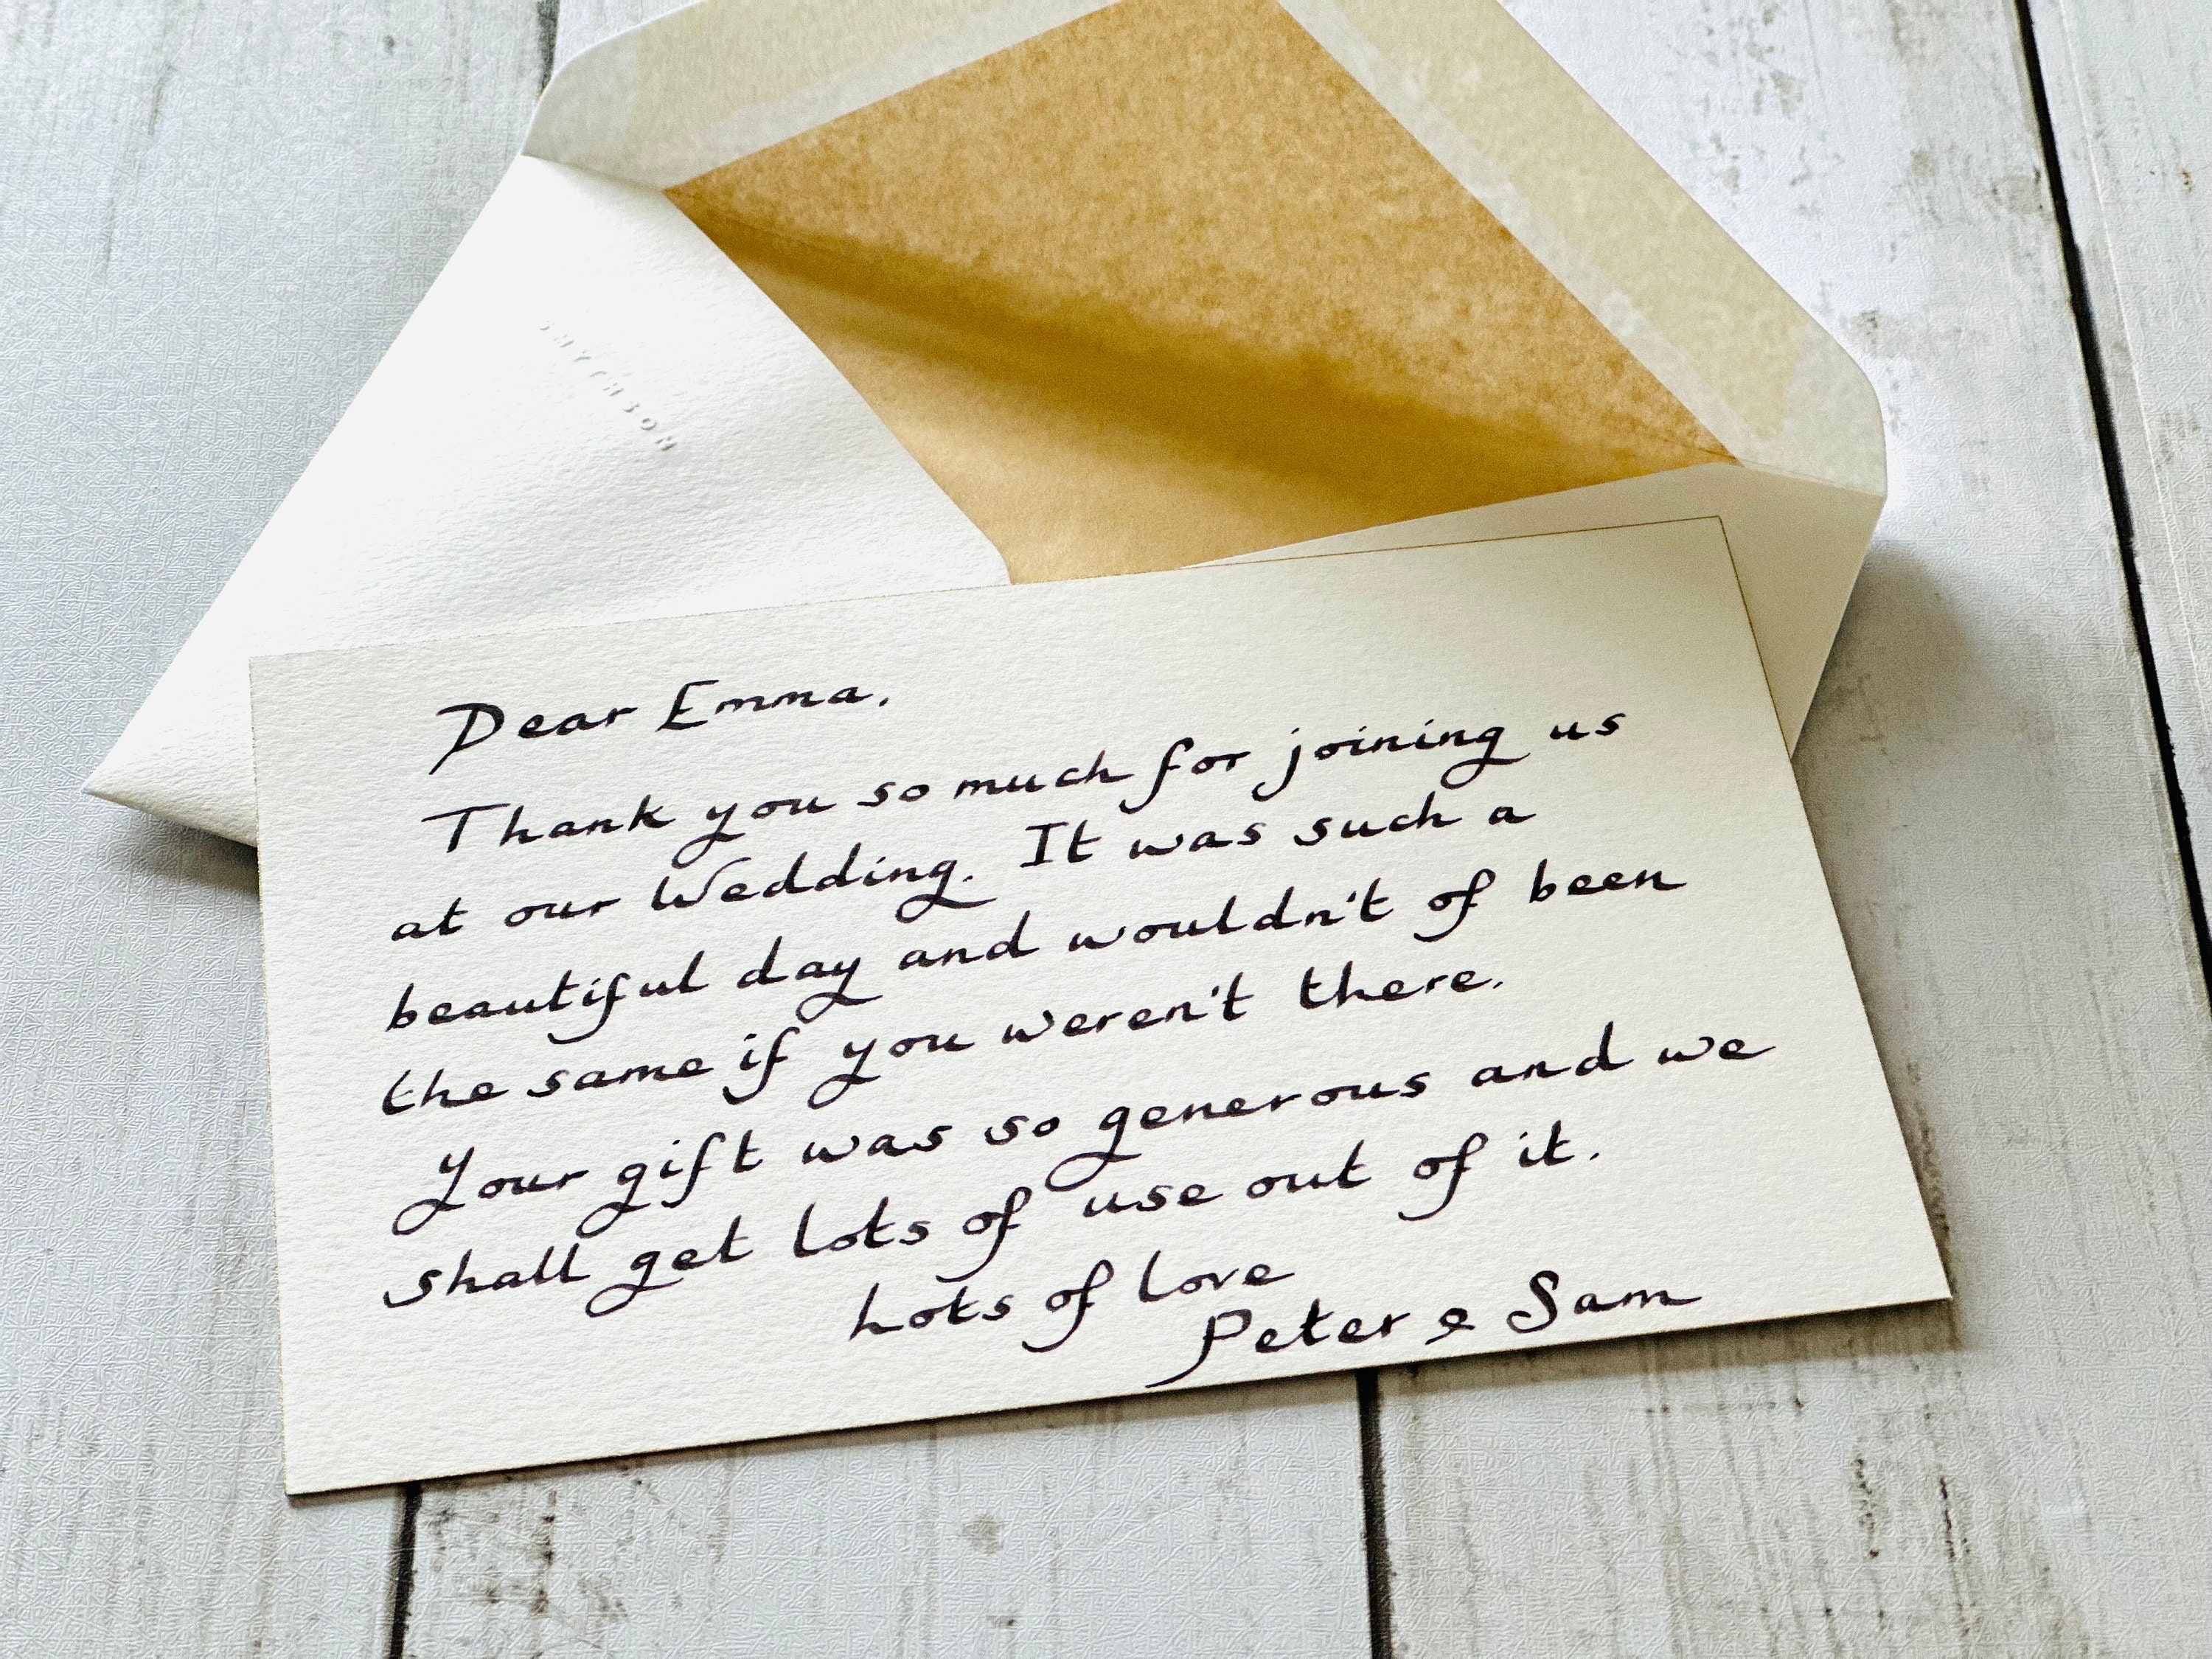 SMYTHSON
Dear Emma,
Thank you so much for joining us
at our Wedding. It was such a
beautiful day and wouldn't of been
the same if you weren't there.
Your gift was so generous and we
shall get lots of use out of it.
Lots of love
Peter & Sam